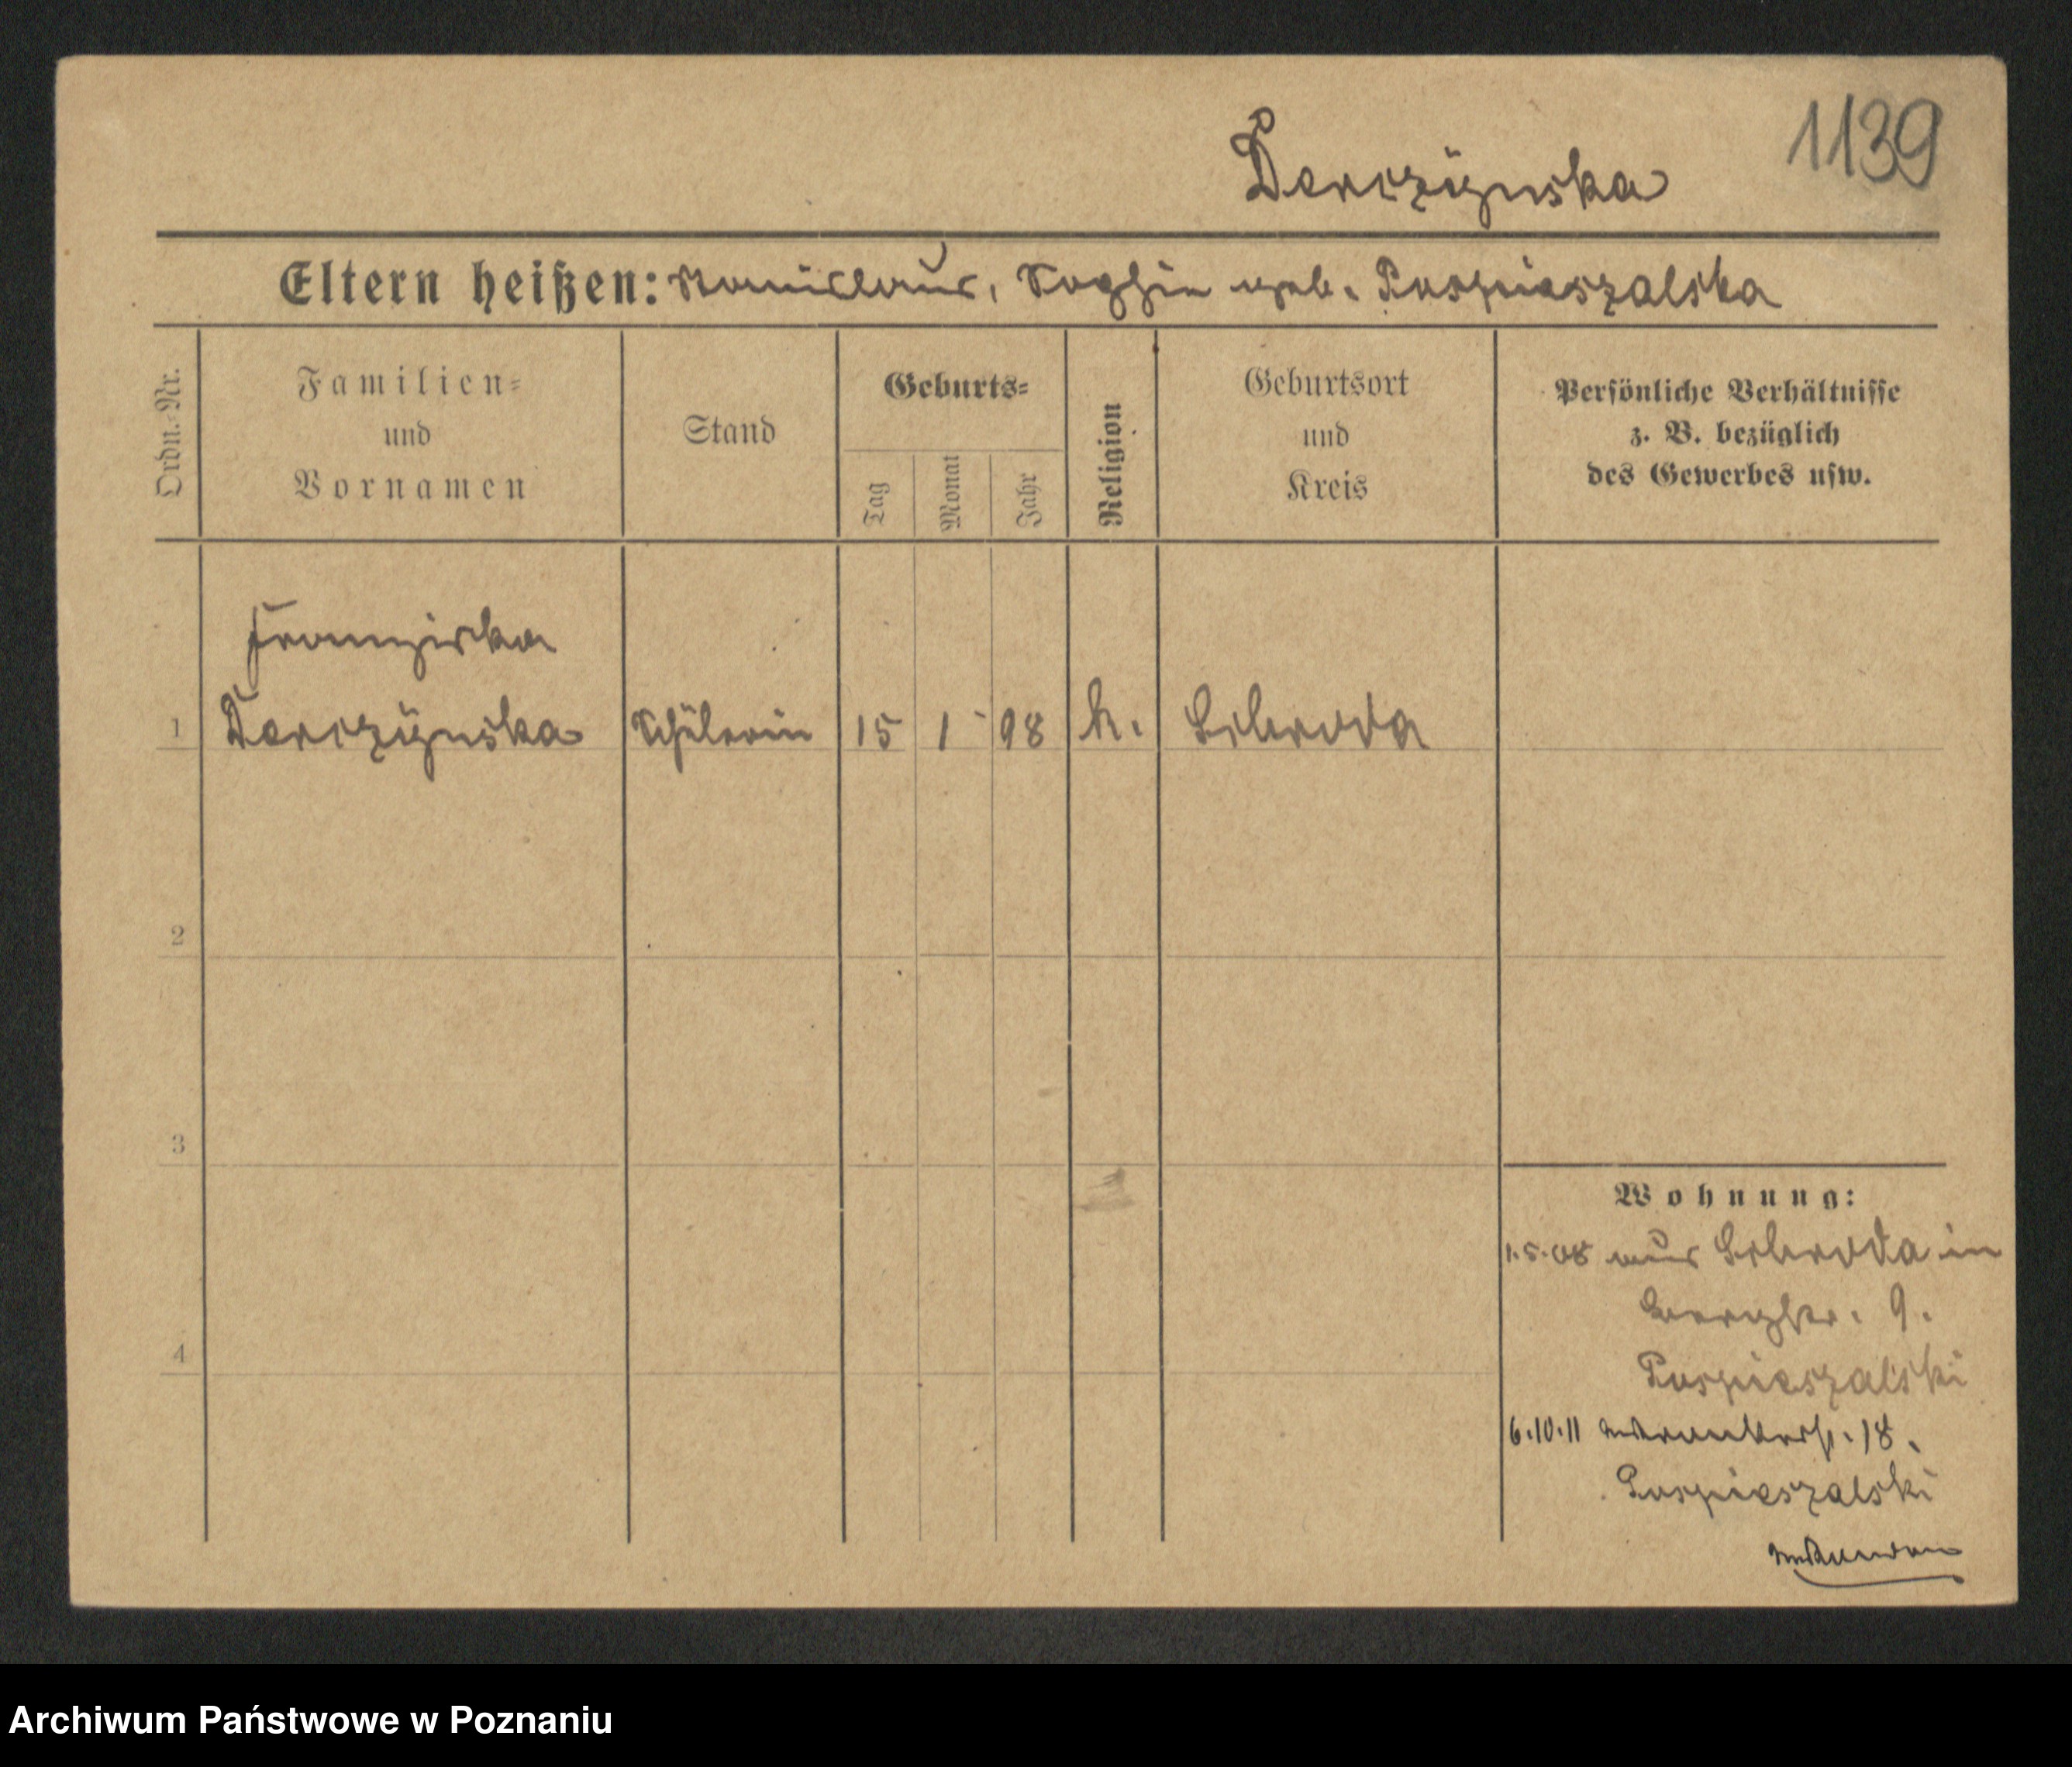 1139
Derczÿnska
Eltern heißen: Stanislaus, Sophie geb. Pospieszalska
Ordn.-Nr.
Familien-
und
Vornamen
Stand
Geburts-
Tag
Monat
Jahr
Religion
Geburtsort
und
Kreis
Persönliche Verhältnisse
z. B. bezüglich
des Gewerbes usw.
Franziska
1 Derczÿnska Schülerin 15 1 98 k. Schroda
2
3
4
Wohnung:
1.5.08 aus Schroda in
Bergstr. 9.
Pospieszalski
6.10.11 18.
Pospieszalski
Archiwum Państwowe w Poznaniu